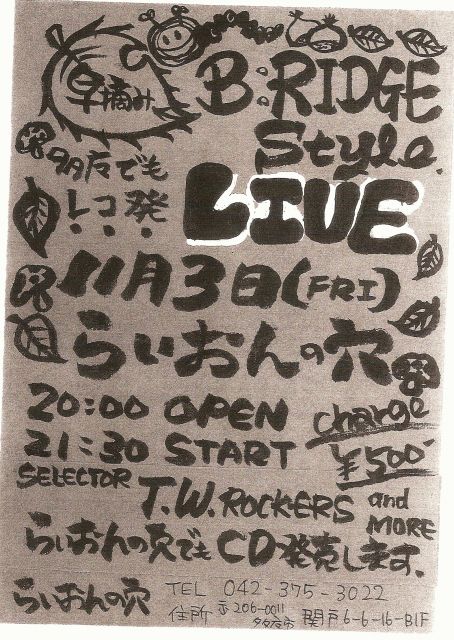 早摘み
B:RIDGE
Style.
多摩でも
レコ発
LIVE
11月3日(FRI)
らいおんの穴
20:00 OPEN
21:30 START
charge
¥500-
SELECTOR
T.W.ROCKERS and
MORE
らいおんの穴でもCD発売します。
らいおんの穴
TEL 042-375-3022
住所 〒206-0011
多摩市 関戸6-6-16-B1F